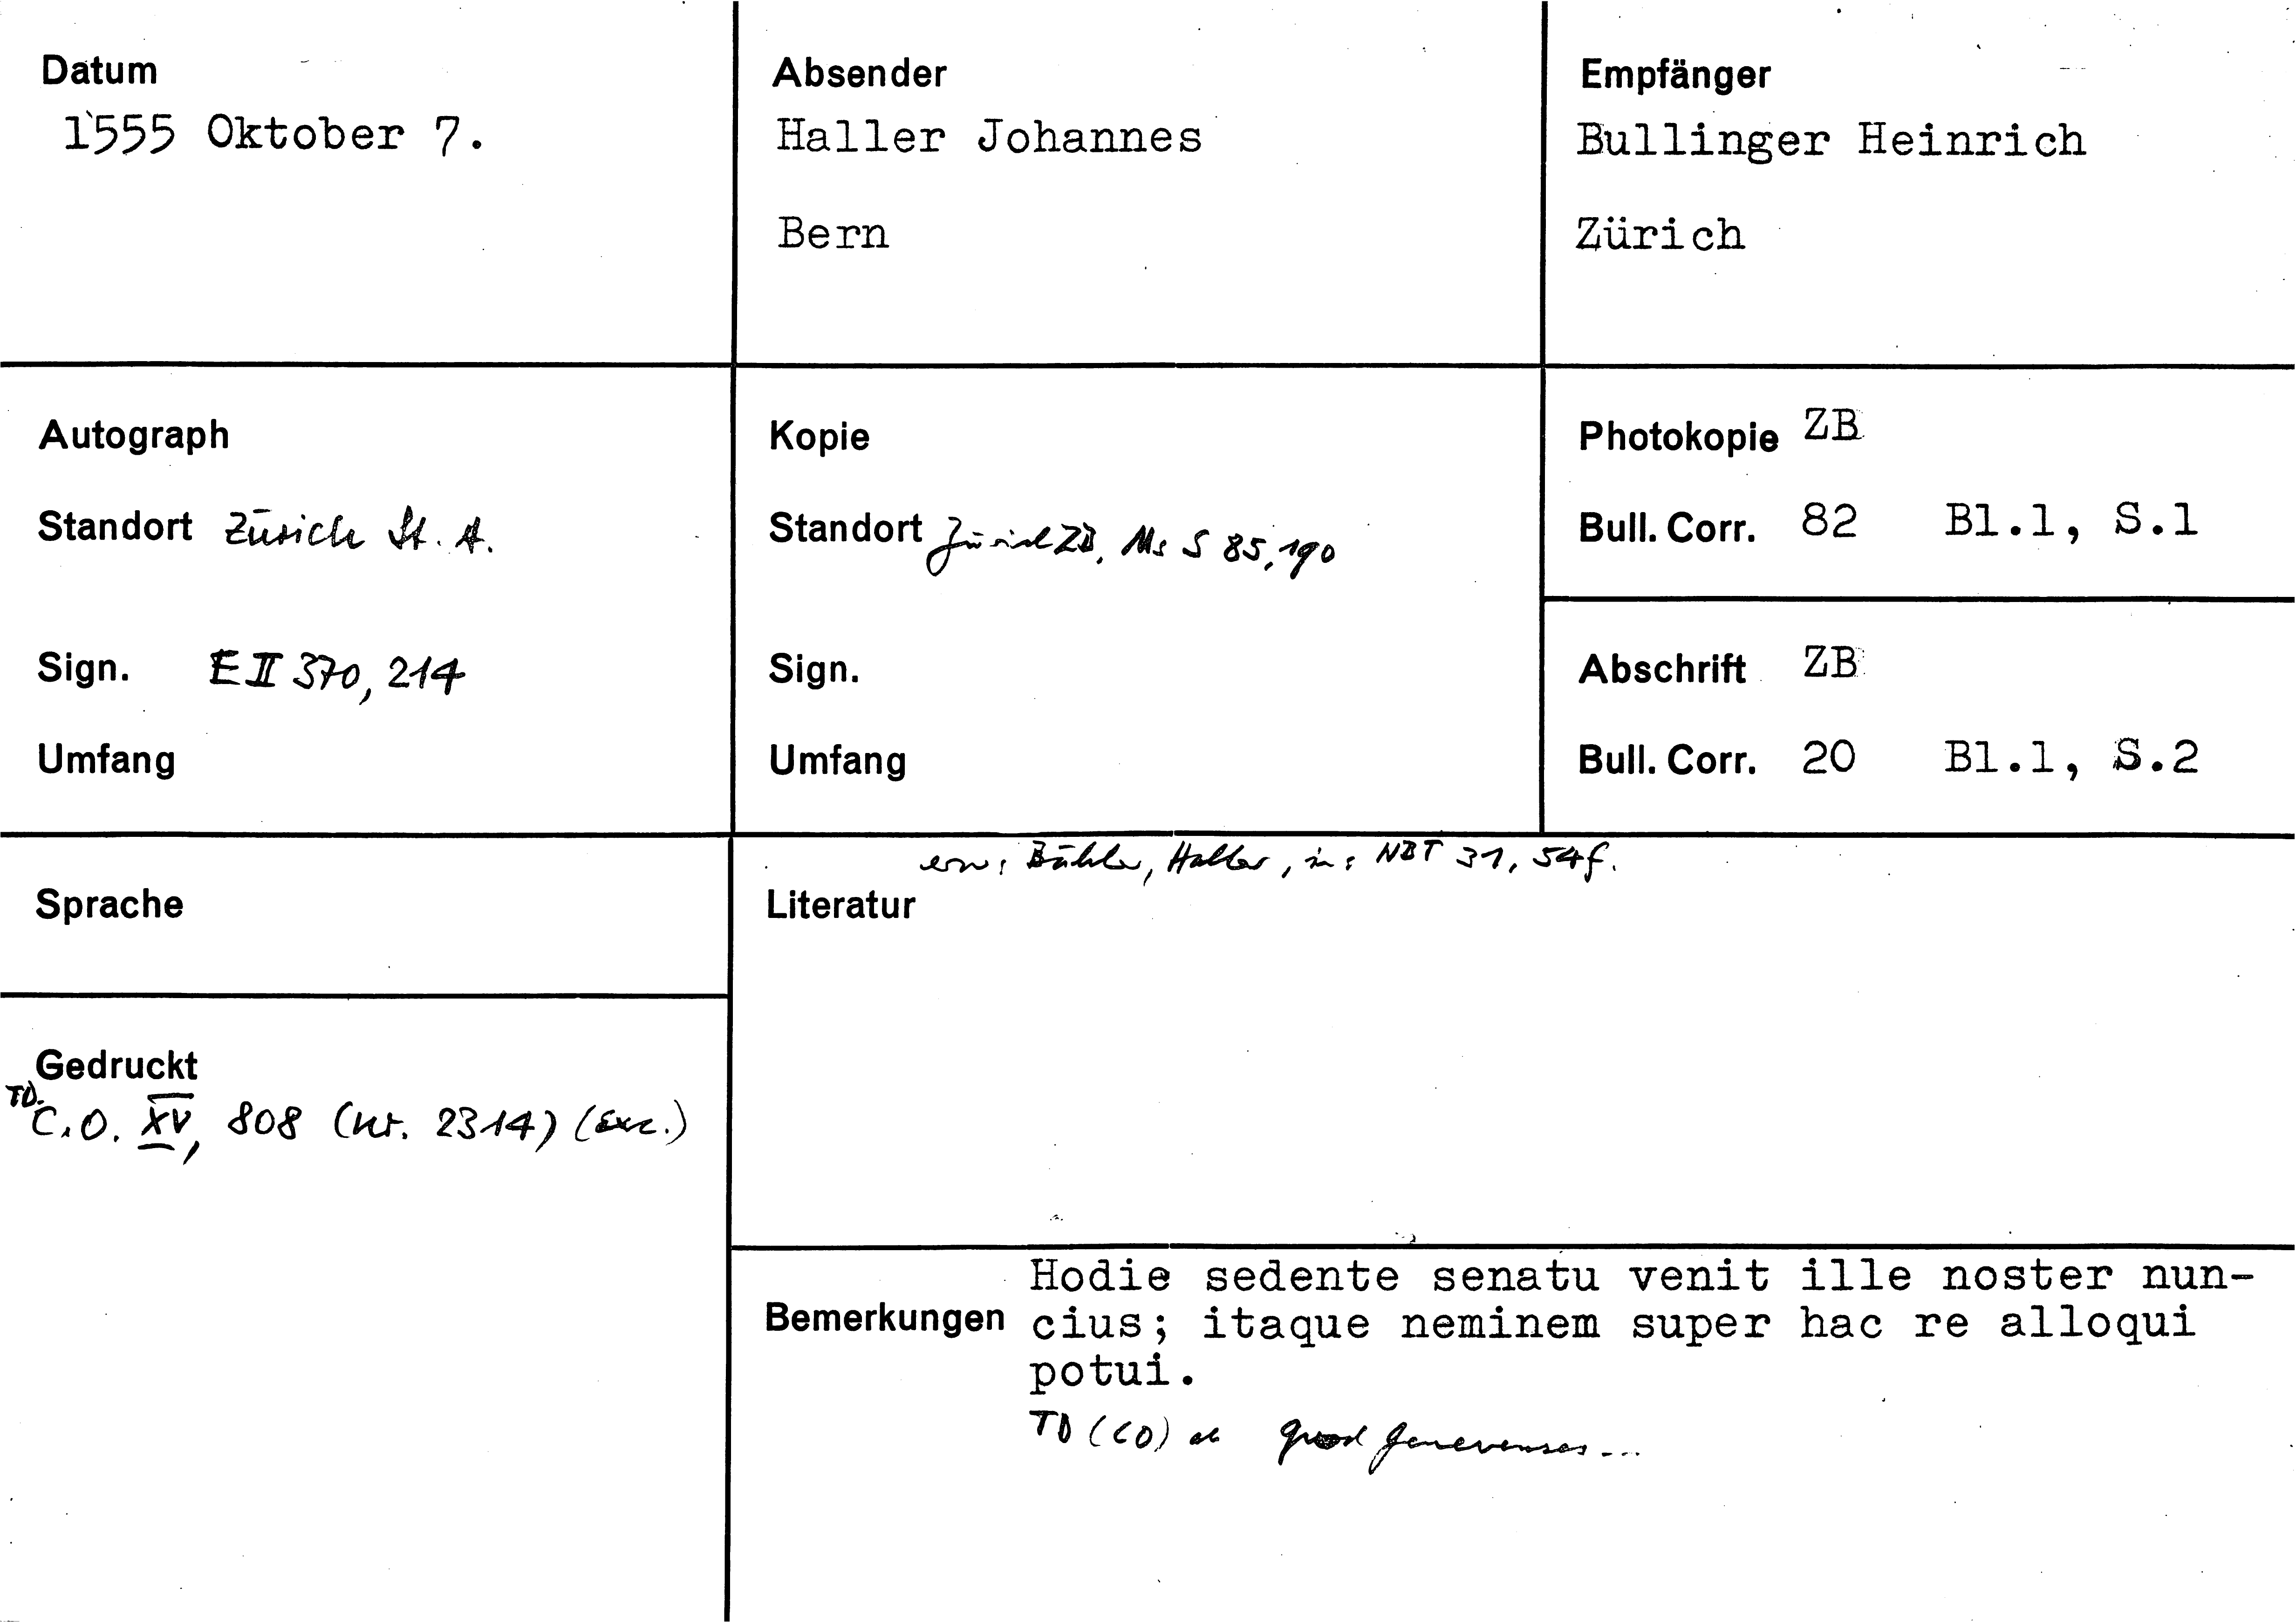 Datum
1555 Oktober 7.
Absender
Haller Johannes
Bern
Empfänger
Bullinger Heinrich
Zürich
Autograph
Standort Zürich St. A.
Sign. E II 370, 214
Umfang
Kopie
Standort Zürich ZB, Ms S 85, 190
Sign.
Umfang
Photokopie ZB
Bull. Corr. 82 Bl.1, S.1
Abschrift ZB
Bull. Corr. 20 Bl.1, S.2
Sprache
Gedruckt
TD. C.O. XV, 808 (Nr. 2314) (Exc.)
erw: Bähler, Haller, in: NBT 31, 54f.
Literatur
Bemerkungen
Hodie sedente senatu venit ille noster nun-
cius; itaque neminem super hac re alloqui
potui.
TD (CO) ab quod Genevenses ...